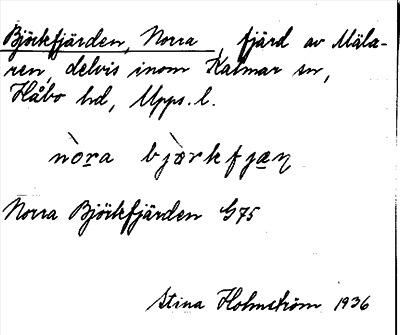 Björkfjärden, Norra, fjärd av Mäla-
ren, delvis inom Kalmar sn,
Håbo hd, Upps. l.
nòra bjærkfjæṇ
Norra Björkfjärden G75
Stina Holmström 1936